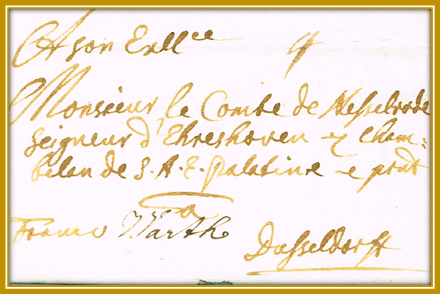 A Son Exll^ce
Monsieur, le Comte de Nesselrode
Seigneur d'Ehreshoven et Cham=
belan de S. A. E. Palatine
a
Franco Warth Dusseldorff